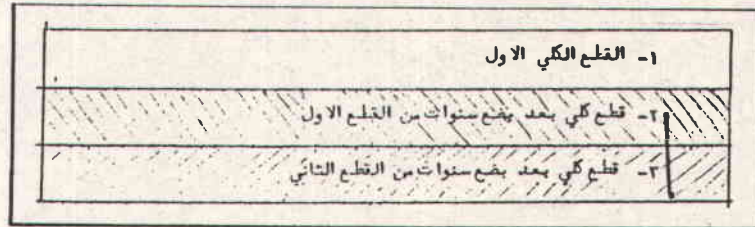 ١- القطع الكلي الاول
٢- قطع كلي بعد بضع سنوات من القطع الاول
٣- قطع كلي بعد بضع سنوات من القطع الثاني